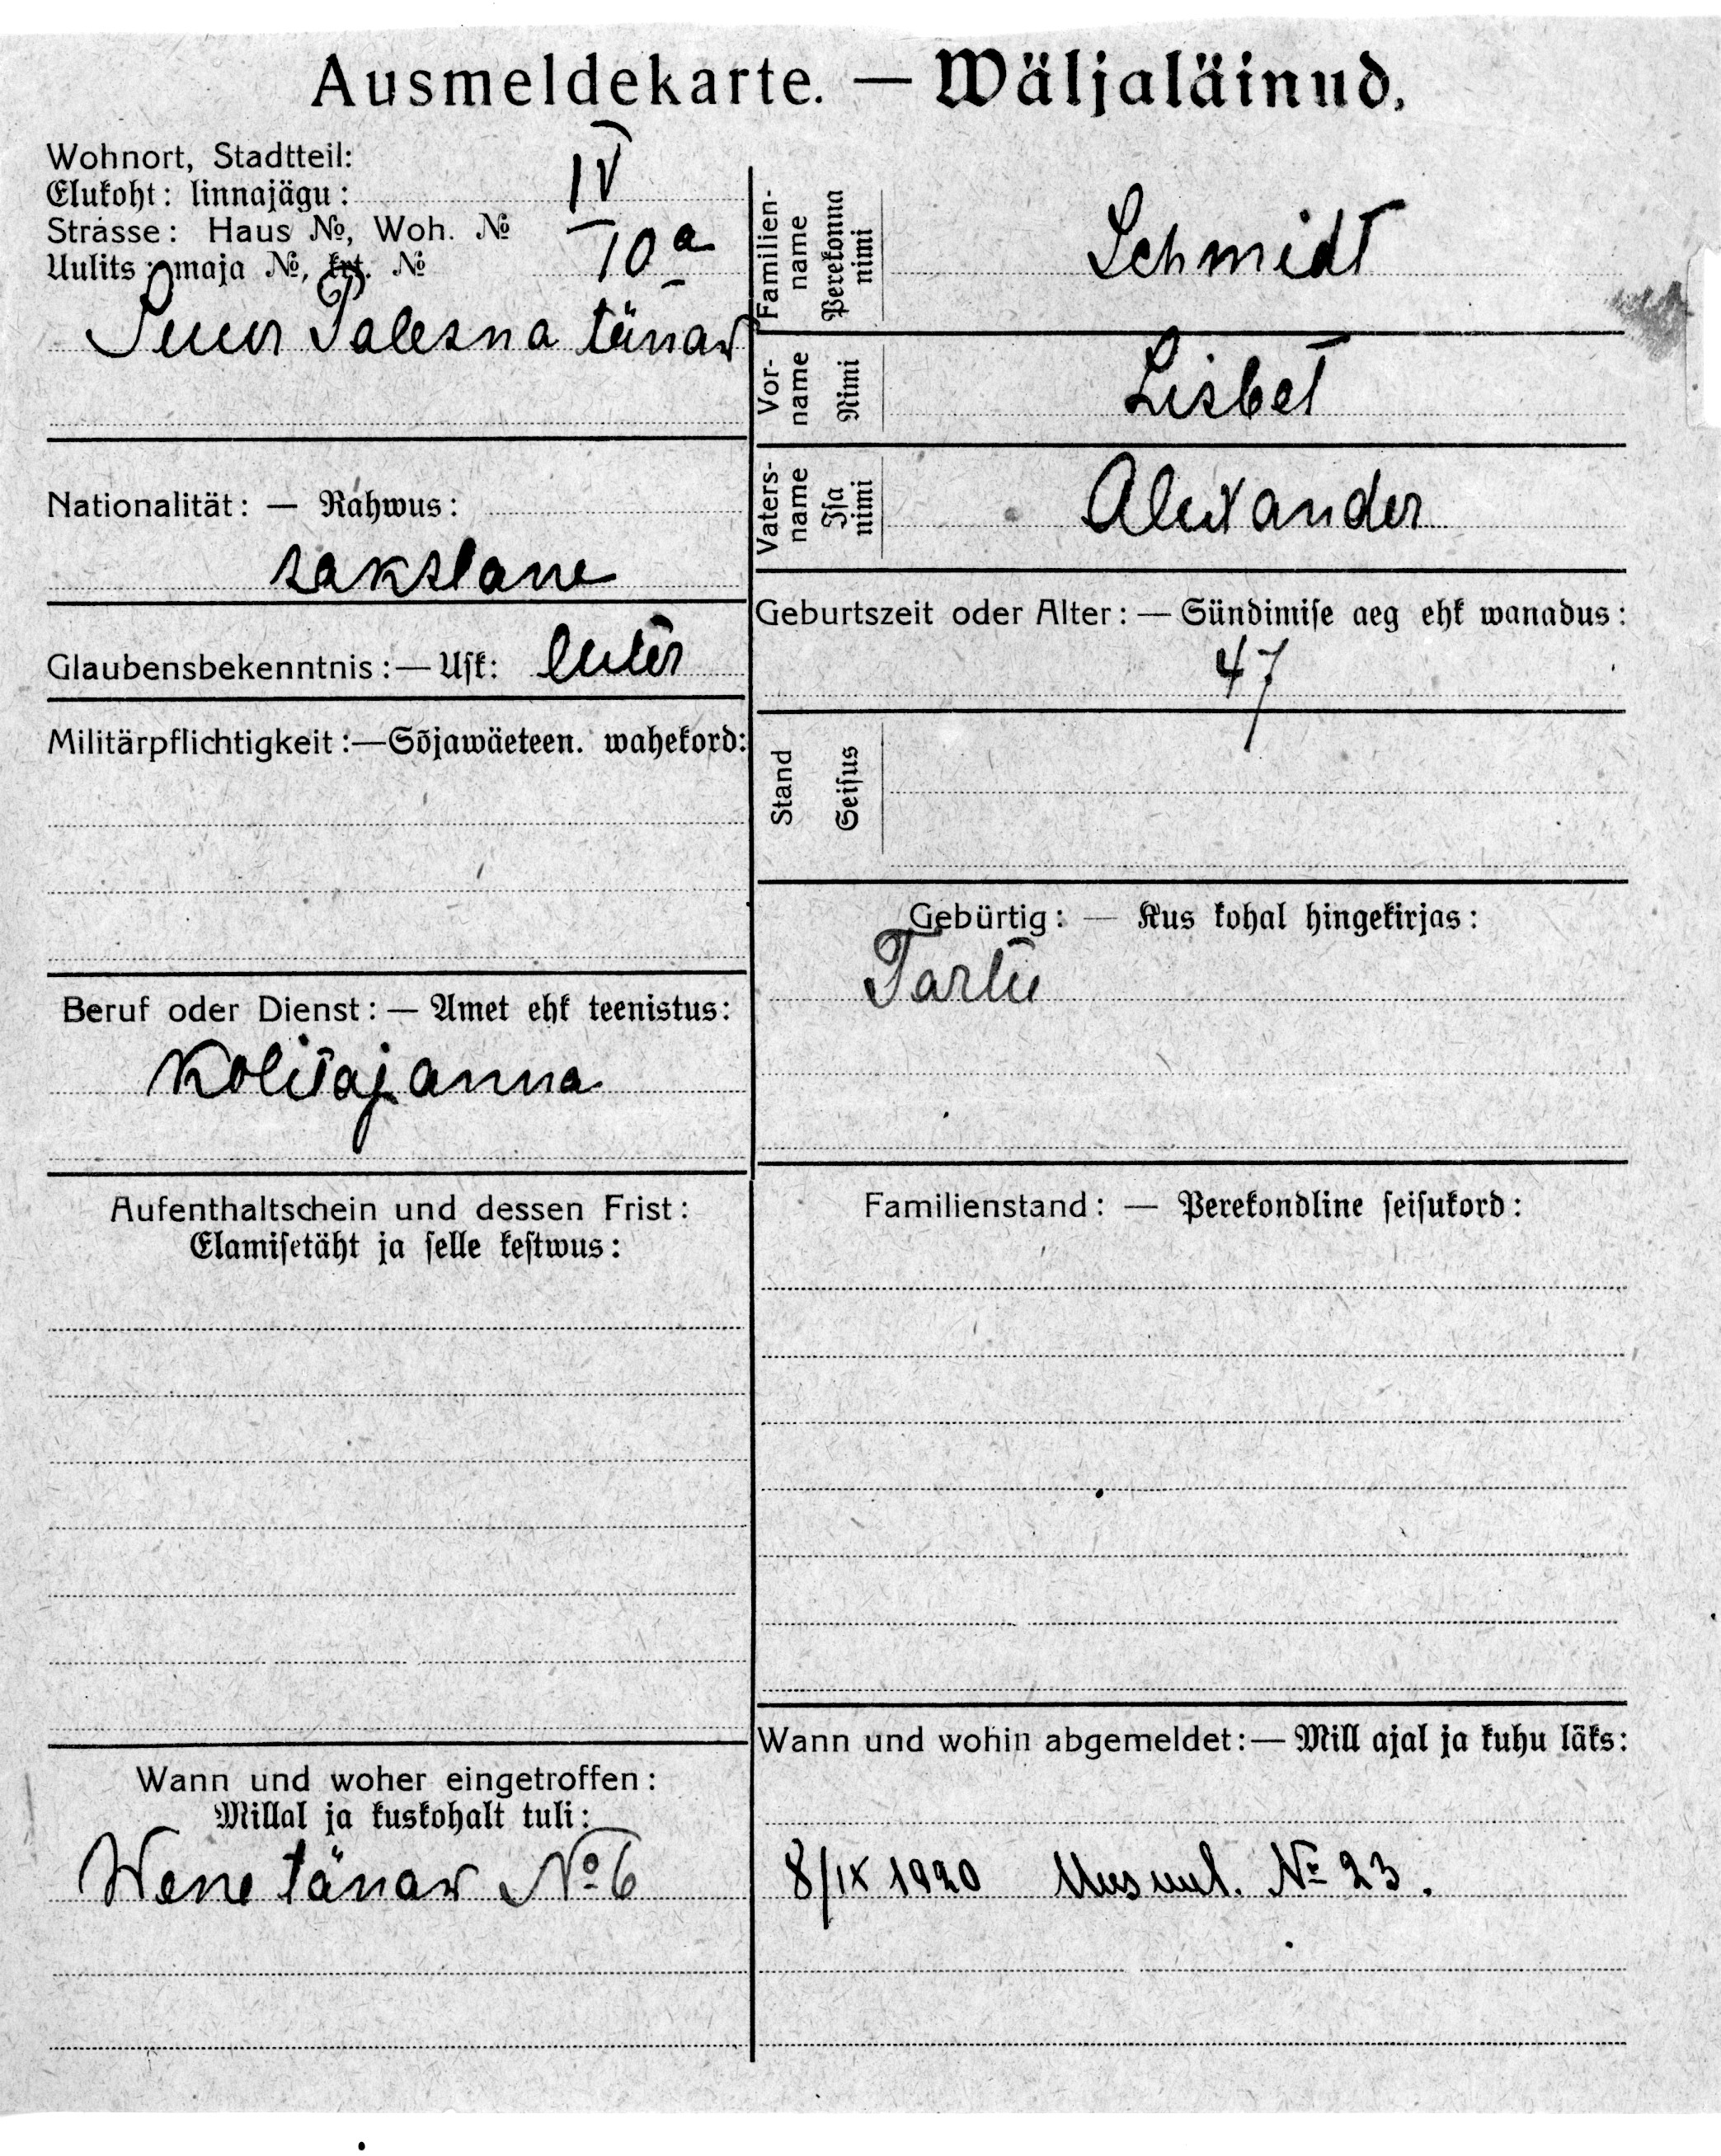 Ausmeldekarte. — Wäljaläinud.
Wohnort, Stadtteil:
Elukoht: linnajägu: IV
Strasse: Haus №, Woh. №
Uulits: maja №, krt. № 10 a
Suur Palesna tänaw
Nationalität: — Rahwus:
sakslane
Glaubensbekenntnis: — Usk: luter
Militärpflichtigkeit: — Sõjawäeteen. wahekord:
Beruf oder Dienst: — Amet ehk teenistus:
Aufenthaltschein und dessen Frist:
Elamisetäht ja selle kestwus:
Wann und woher eingetroffen:
Millal ja kuskohalt tuli:
Wene tänaw № 6
Familien-name Perekonna nimi Schmidt
Vor-name Nimi Lisbet
Vaters-name Isa nimi Alexander
Geburtszeit oder Alter: — Sündimise aeg ehk wanadus:
47
Stand Seisus
Gebürtig: — Kus kohal hingekirjas:
Tartu
Familienstand: — Perekondline seisukord:
Wann und wohin abgemeldet: — Mill ajal ja kuhu läks:
8/IX 1920 Uus uul. № 23.